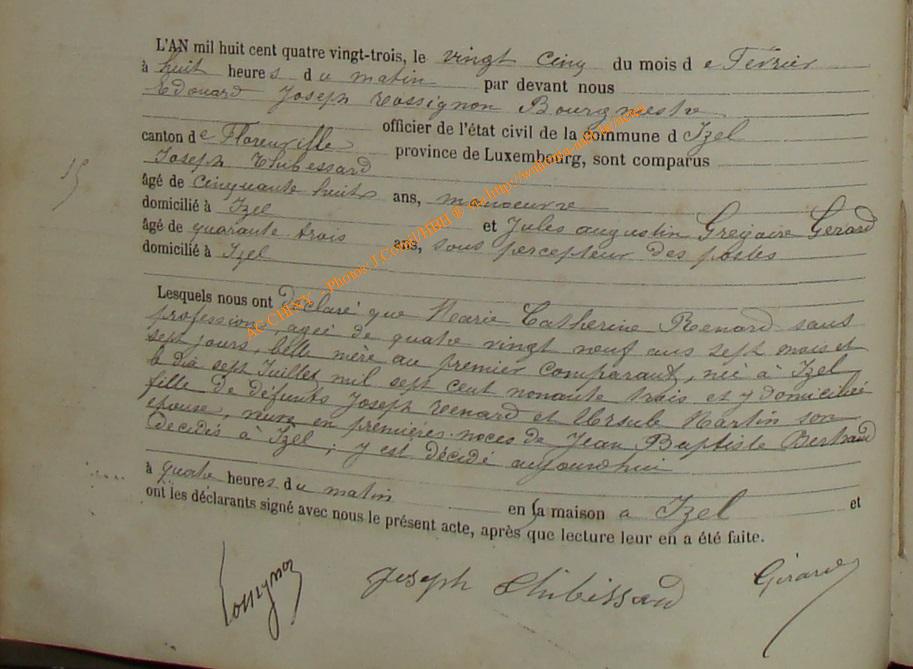 L'AN mil huit cent quatre vingt-trois, le vingt cinq du mois de Février
à huit heures du matin par devant nous
Edouard Joseph Rossignon Bourgmestre
officier de l'état civil de la commune d Izel
canton de Florenville province de Luxembourg, sont comparus
Joseph Thibessard
âgé de cinquante huit ans, manoeuvre
domicilié à Izel et Jules augustin Grégoire Gerard
âgé de quarante trois ans, sous percepteur des postes
domicilié à Izel
Lesquels nous ont déclaré que Marie Catherine Renard sans
profession, agée de quatre vingt neuf ans sept mois et
sept jours, belle mère au premier comparant, née à Izel
le dix sept Juillet mil sept cent nonante trois et y domiciliée
fille de défunts Joseph Renard et Ursule Martin son
épouse, veuve en premières noces de Jean Baptiste Bertrand
décédés à Izel ; y est décédé aujourdhui
à quatre heures du matin en sa maison a Izel et
ont les déclarants signé avec nous le présent acte, après que lecture leur en a été faite.
Rossignon Joseph Thibessard Gérard
15